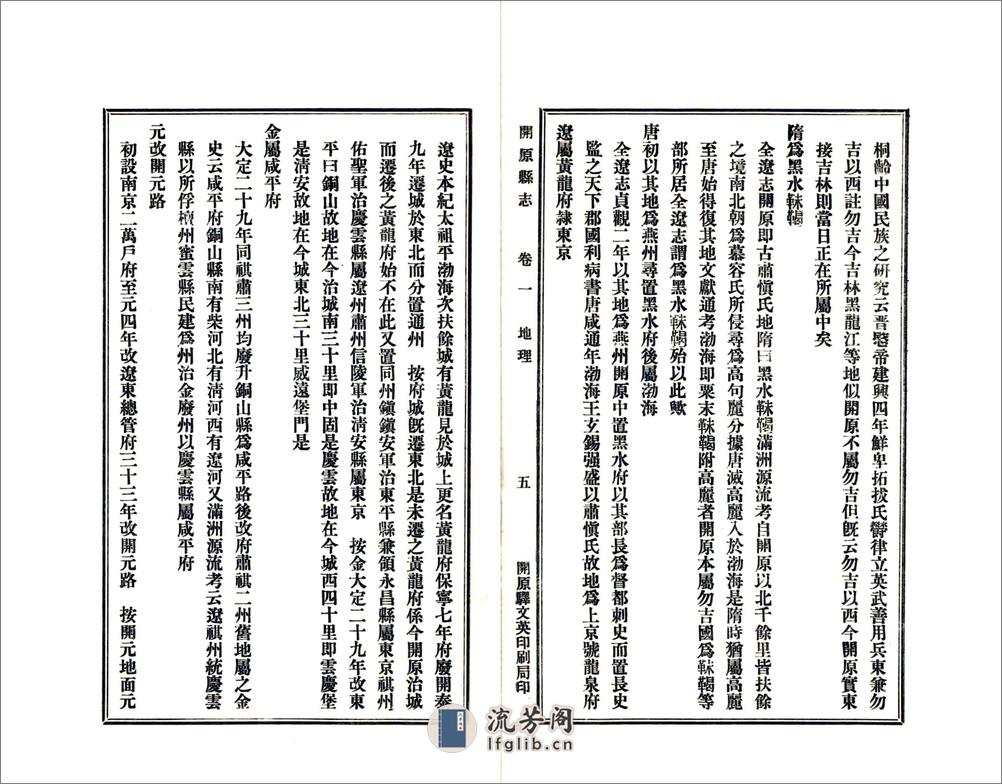 桐齡中國民族之研究云晋愍帝建興四年鮮卑拓拔氏欝律立英武善用兵東兼勿
吉以西註勿吉今吉林黑龍江等地似開原不屬勿吉但旣云勿吉以西今開原實東
接吉林則當日正在所屬中矣
隋爲黑水靺鞨
全遼志開原卽古肅愼氏地隋曰黑水靺鞨滿洲源流考自開原以北千餘里皆扶餘
之境南北朝爲慕容氏所侵尋爲高句麗分據唐滅高麗入於渤海是隋時猶屬高麗
至唐始得復其地文獻通考渤海卽粟末靺鞨附高麗者開原本屬勿吉國爲靺鞨等
部所居全遼志謂爲黑水靺鞨殆以此歟
唐初以其地爲燕州尋置黑水府後屬渤海
全遼志貞觀二年以其地爲燕州開原中置黑水府以其部長爲督都刺史而置長史
監之天下郡國利病書唐咸通年渤海王玄錫强盛以肅愼氏故地爲上京號龍泉府
遼屬黃龍府隸東京
開原縣志 卷一 地理 五 開原驛文英印刷局印
遼史本紀太祖平渤海次扶餘城有黃龍見於城上更名黃龍府保寧七年府廢開泰
九年遷城於東北而分置通州 按府城旣遷東北是未遷之黃龍府係今開原治城
而遷後之黃龍府始不在此又置同州鎭鎭安軍治東平縣兼領永昌縣屬東京祺州
佑聖軍治慶雲縣屬遼州肅州信陵軍治淸安縣屬東京 按金大定二十九年改東
平曰銅山故地在今治城南三十里卽中固是慶雲故地在今城西四十里卽雲慶堡
是淸安故地在今城東北三十里威遠堡門是
金屬咸平府
大定二十九年同祺肅三州均廢升銅山縣爲咸平路後改府肅祺二州舊地屬之金
史云咸平府銅山縣南有柴河北有淸河西有遼河又滿洲源流考云遼祺州統慶雲
縣以所俘檀州蜜雲縣民建爲州治金廢州以慶雲縣屬咸平府
元改開元路
初設南京二萬戶府至元四年改遼東總管府三十三年改開元路 按開元地面元
流芳阁
lfglib.cn